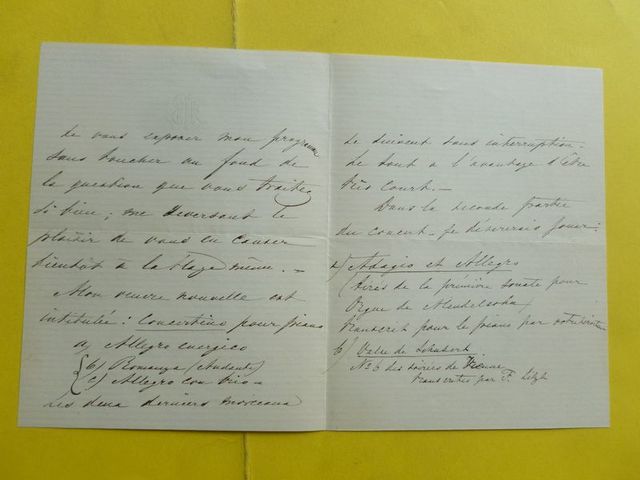 de vous exposer mon programme
sans toucher au fond de
la question que vous traitez
si bien; me reservant le
plaisir de vous en causer
bientôt à la Haye même. -
Mon œuvre nouvelle est
intitulée: Concertino pour piano
a) Allegro energico
b) Romanza (Andante)
c) Allegro con brio -
Les deux derniers morceaux
se suivent sans interruption -
Le tout a l'avantage d'être
très court. -
Dans la seconde partie
du concert - je désirerais jouer:
a) Adagio et Allegro
(tirés de la première Sonate pour
Orgue de Mendelssohn)
transcrit pour le piano par votre
b) Valse de Schubert
No 6 des soirées de Vienne
transcrites par F. Liszt